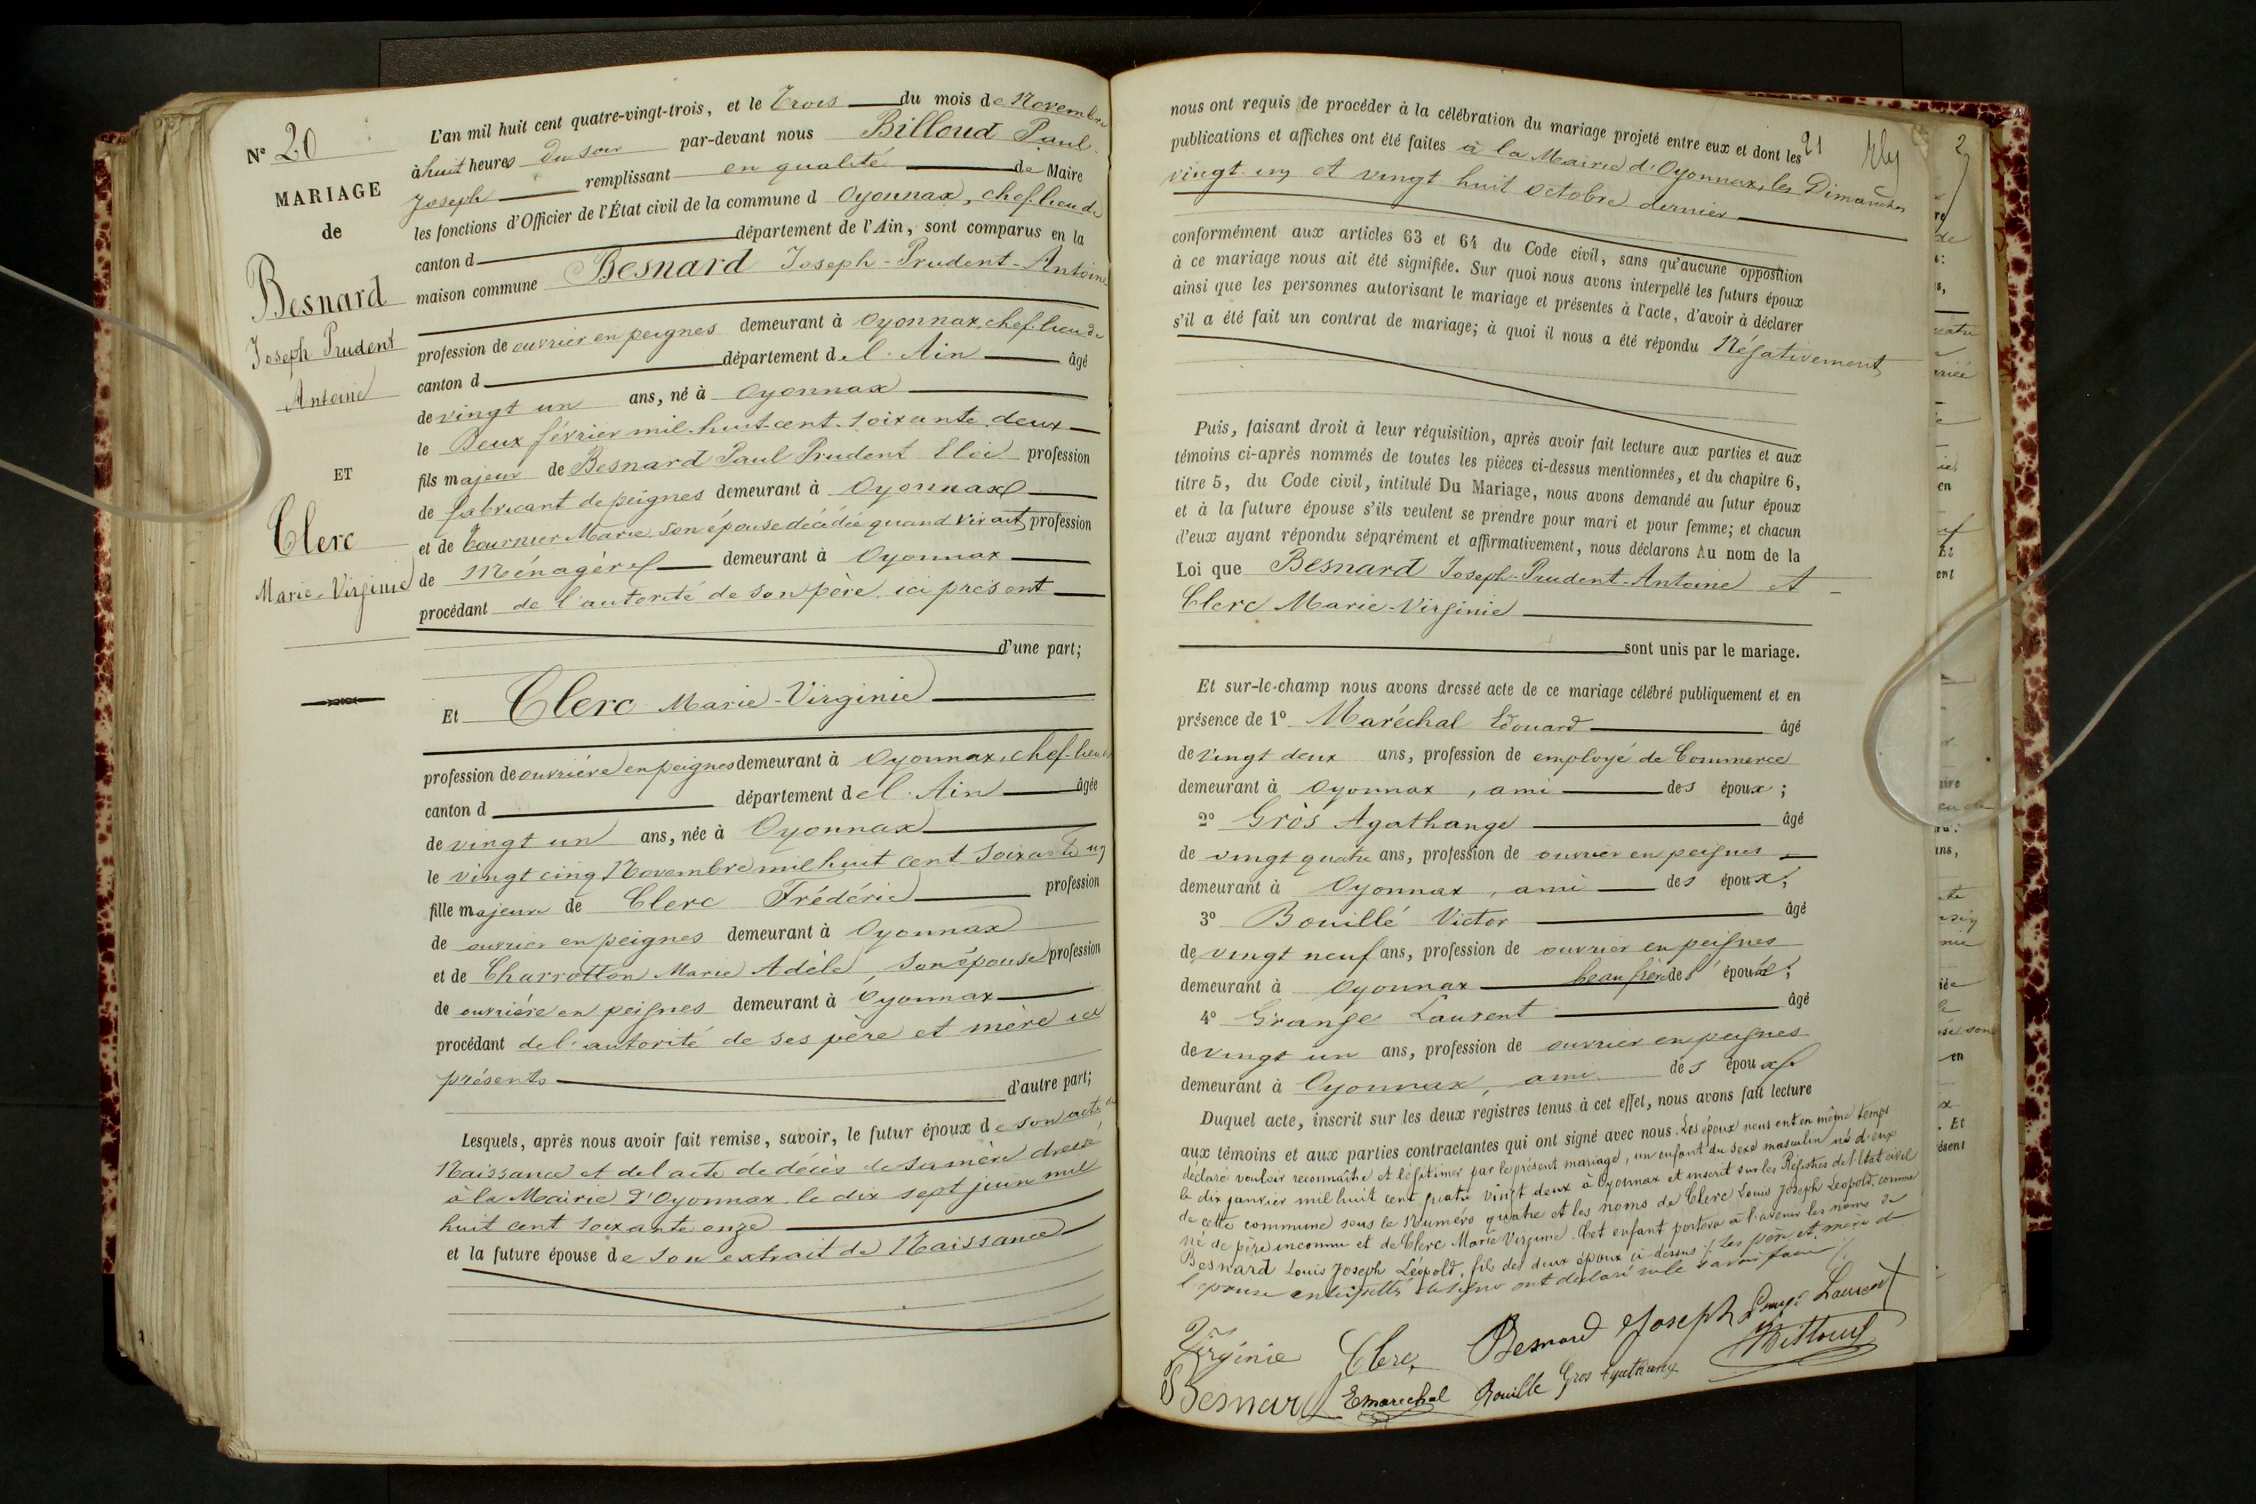 N° 20
MARIAGE
de
Besnard
Joseph Prudent
Antoine
ET
Clerc
Marie-Virginie
L'an mil huit cent quatre-vingt-trois, et le Trois du mois de Novembre
à huit heures du soir par-devant nous Billoud Paul
Joseph remplissant en qualité de Maire
les fonctions d'Officier de l'État civil de la commune d Oyonnax, chef-lieu de
canton d département de l'Ain, sont comparus en la
maison commune Besnard Joseph-Prudent-Antoine
profession de ouvrier en peignes demeurant à Oyonnax, chef-lieu de
canton d département de l'Ain âgé
de vingt un ans, né à Oyonnax
le Deux février mil-huit-cent-soixante-deux
fils majeur de Besnard Paul Prudent Eloi profession
de fabricant de peignes demeurant à Oyonnax
et de Tournier Marie son épouse décédée quand vivait profession
de Ménagère demeurant à Oyonnax
procédant de l'autorité de son père, ici présent
d'une part;
Et Clerc Marie-Virginie
profession de ouvrière en peignes demeurant à Oyonnax, chef-lieu
canton d département de l'Ain âgée
de vingt un ans, née à Oyonnax
le vingt cinq Novembre mil huit cent soixante un
fille majeure de Clerc Frédéric profession
de ouvrier en peignes demeurant à Oyonnax
et de Charrotton Marie Adèle, son épouse profession
de ouvrière en peignes demeurant à Oyonnax
procédant de l'autorité de ses père et mère ici
présents d'autre part;
Lesquels, après nous avoir fait remise, savoir, le futur époux de son acte de
Naissance et de l acte de décès de sa mère dressé
à la Mairie d'Oyonnax le dix sept juin mil
huit cent soixante onze
et la future épouse de son extrait de Naissance
21
nous ont requis de procéder à la célébration du mariage projeté entre eux et dont les
publications et affiches ont été faites à la Mairie d'Oyonnax, les Dimanches
vingt-un et vingt huit octobre dernier
conformément aux articles 63 et 64 du Code civil, sans qu'aucune opposition
à ce mariage nous ait été signifiée. Sur quoi nous avons interpellé les futurs époux
ainsi que les personnes autorisant le mariage et présentes à l'acte, d'avoir à déclarer
s'il a été fait un contrat de mariage; à quoi il nous a été répondu Négativement
Puis, faisant droit à leur réquisition, après avoir fait lecture aux parties et aux
témoins ci-après nommés de toutes les pièces ci-dessus mentionnées, et du chapitre 6,
titre 5, du Code civil, intitulé Du Mariage, nous avons demandé au futur époux
et à la future épouse s'ils veulent se prendre pour mari et pour femme; et chacun
d'eux ayant répondu séparément et affirmativement, nous déclarons Au nom de la
Loi que Besnard Joseph-Prudent-Antoine et
Clerc Marie-Virginie
sont unis par le mariage.
Et sur-le-champ nous avons dressé acte de ce mariage célébré publiquement et en
présence de 1° Maréchal Edouard âgé
de vingt deux ans, profession de employé de Commerce
demeurant à Oyonnax, ami des époux;
2° Gros Agathange âgé
de vingt quatre ans, profession de ouvrier en peignes
demeurant à Oyonnax, ami des époux;
3° Bouillé Victor âgé
de vingt neuf ans, profession de ouvrier en peignes
demeurant à Oyonnax beau frère de l'époux;
4° Grange Laurent âgé
de vingt un ans, profession de ouvrier en peignes
demeurant à Oyonnax, ami des époux
Duquel acte, inscrit sur les deux registres tenus à cet effet, nous avons fait lecture
aux témoins et aux parties contractantes qui ont signé avec nous. Les époux nous ont en même temps
déclaré vouloir reconnaître et légitimer par le présent mariage, un enfant du sexe masculin né d'eux
le dix janvier mil huit cent quatre vingt deux à Oyonnax et inscrit sur les Registres de l'Etat civil
de cette commune sous le Numéro quatre et les noms de Clerc Louis Joseph Léopold, comme
né de père inconnu et de Clerc Marie Virginie. Cet enfant portera à l'avenir les noms de
Besnard Louis Joseph Léopold, fils des deux époux ci-dessus. Les père et mère de
l'épouse ont déclaré ne le savoir faire
Virginie Clerc Besnard Joseph Grange Laurent
Besnard E marechal Bouille Gros Agathange Billoud